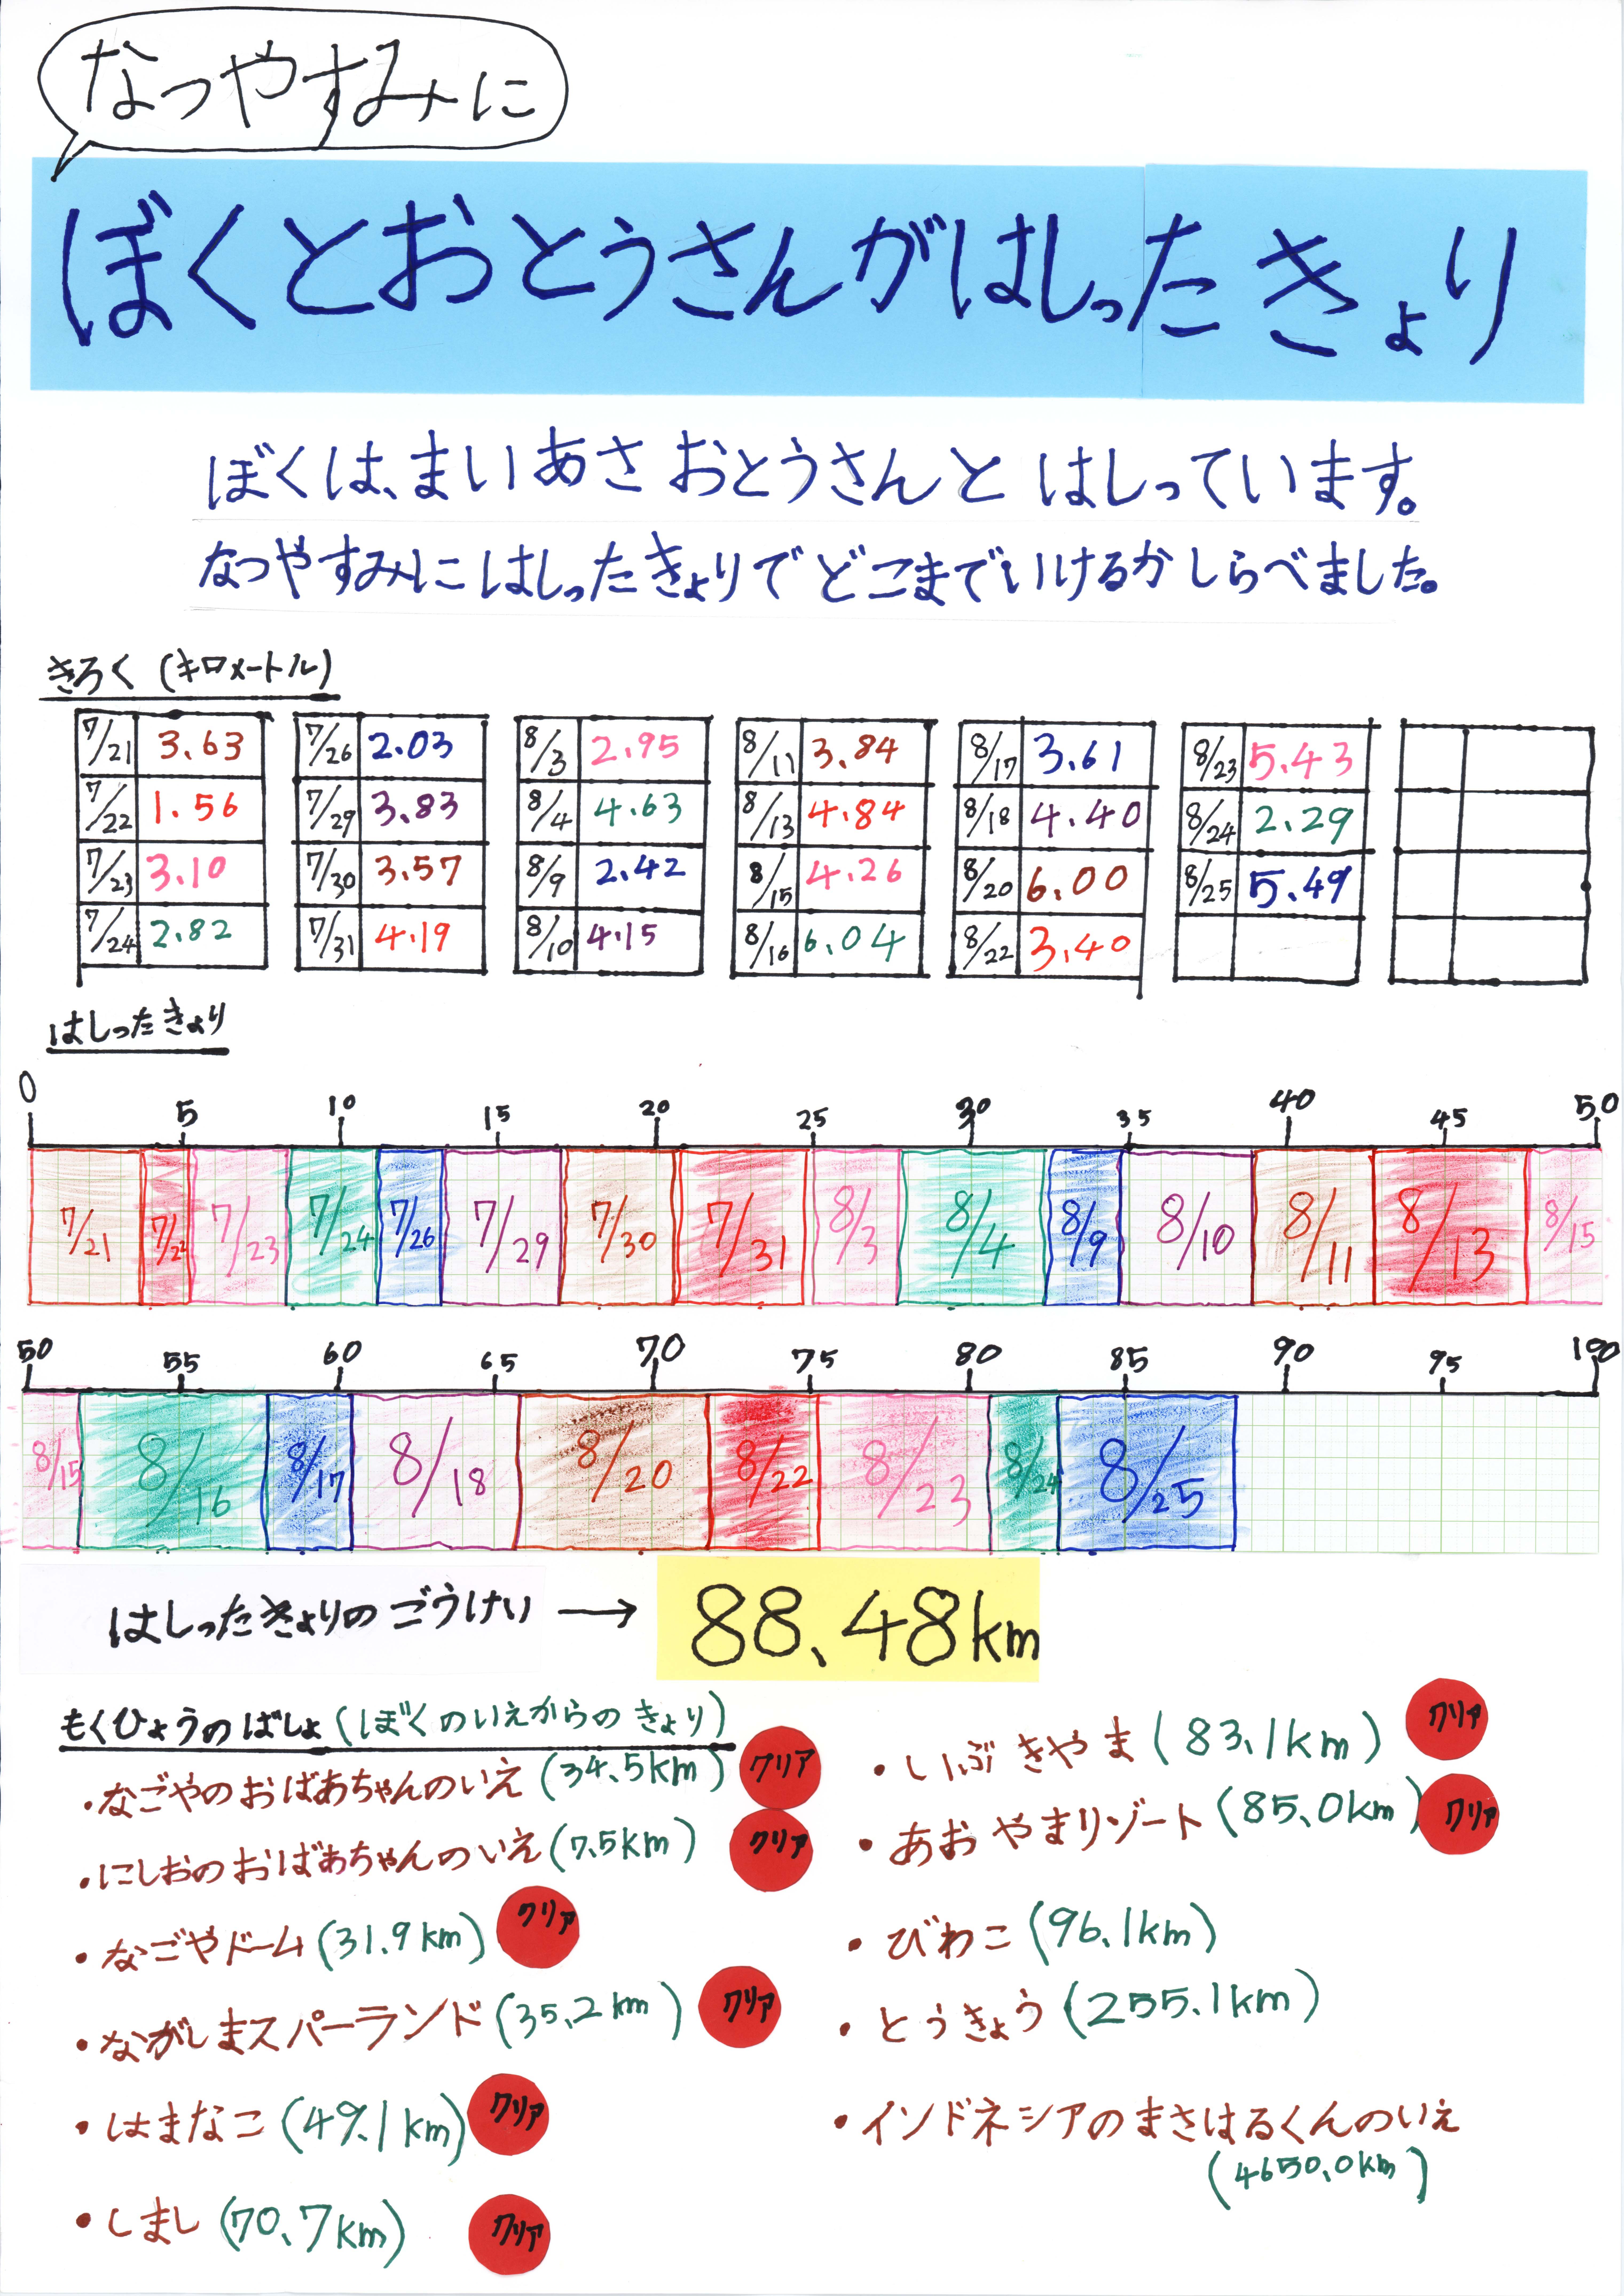 なつやすみに
ぼくとおとうさんがはしったきょり
ぼくは、まいあさ おとうさんと はしっています。
なつやすみに はしったきょりで どこまでいけるか しらべました。
きろく (キロメートル)
7/21 3.63
7/22 1.56
7/23 3.10
7/24 2.82
7/26 2.03
7/29 3.83
7/30 3.57
7/31 4.19
8/3 2.95
8/4 4.63
8/9 2.42
8/10 4.15
8/11 3.84
8/13 4.84
8/15 4.26
8/16 6.04
8/17 3.61
8/18 4.40
8/20 6.00
8/22 3.40
8/23 5.43
8/24 2.29
8/25 5.49
はしったきょり
0 5 10 15 20 25 30 35 40 45 50
7/21 7/22 7/23 7/24 7/26 7/29 7/30 7/31 8/3 8/4 8/9 8/10 8/11 8/13 8/15
50 55 60 65 70 75 80 85 90 95 100
8/15 8/16 8/17 8/18 8/20 8/22 8/23 8/24 8/25
はしったきょりの ごうけい → 88.48km
もくひょうのばしょ (ぼくのいえからの きょり)
・なごやのおばあちゃんのいえ (34.5km) クリア
・にしおのおばあちゃんのいえ (7.5km) クリア
・なごやドーム (31.9km) クリア
・ながしまスパーランド (35.2km) クリア
・はまなこ (49.1km) クリア
・しまし (70.7km) クリア
・いぶきやま (83.1km) クリア
・あおやまリゾート (85.0km) クリア
・びわこ (96.1km)
・とうきょう (255.1km)
・インドネシアのまさはるくんのいえ
(4650.0km)